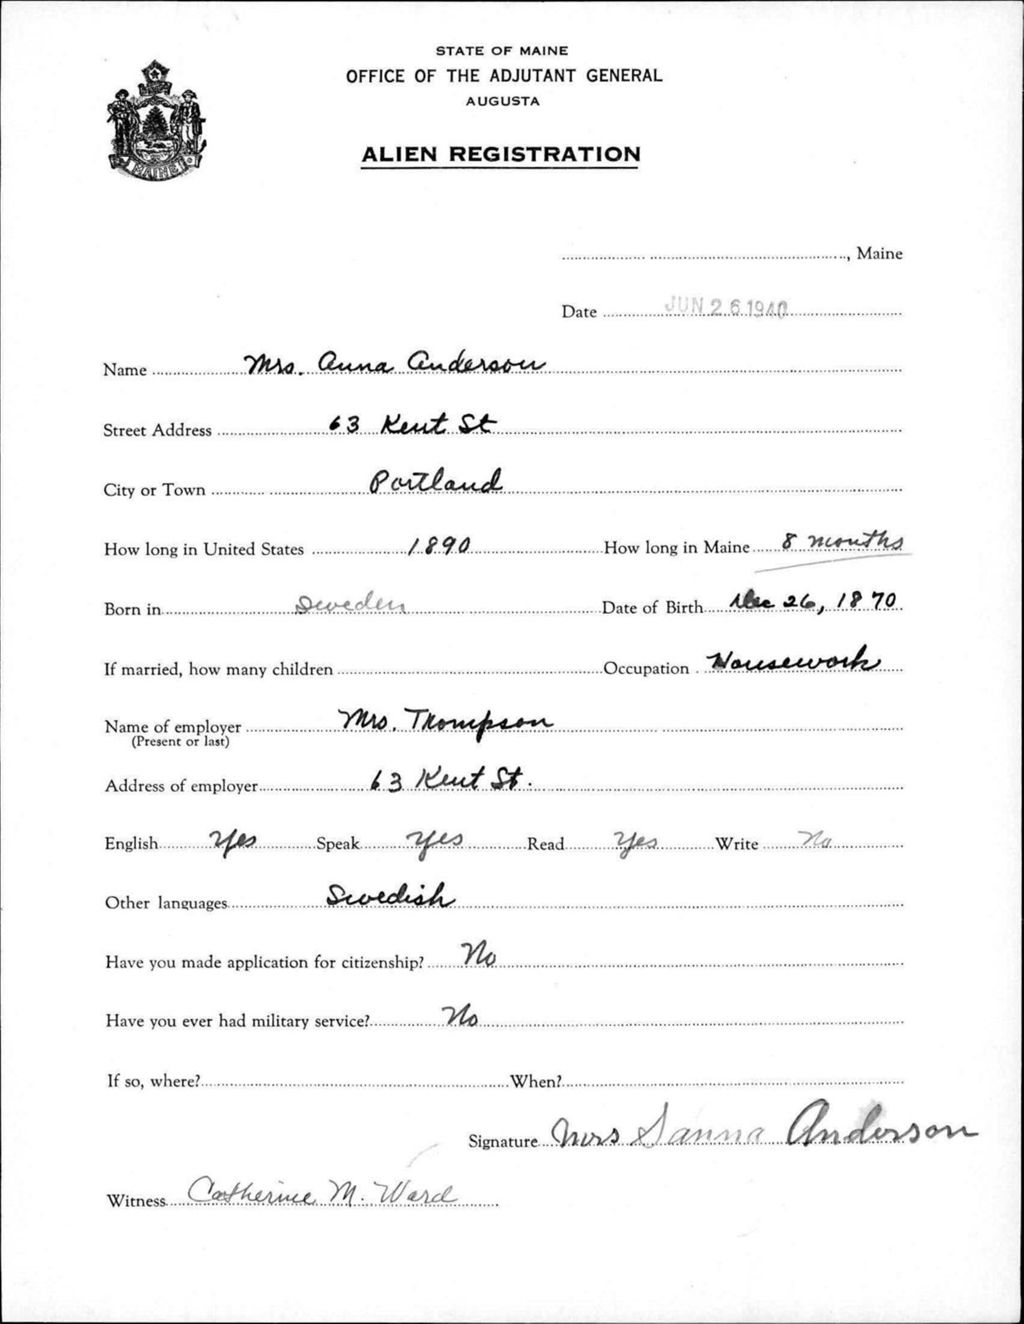 STATE OF MAINE
OFFICE OF THE ADJUTANT GENERAL
AUGUSTA
ALIEN REGISTRATION
MAINE
, Maine
Date JUN 26 1940
Name Mrs. Anna Anderson
Street Address 63 Kent St
City or Town Portland
How long in United States 1890 How long in Maine 8 months
Born in Sweden Date of Birth Dec 26, 1870
If married, how many children Occupation Housework
Name of employer Mrs. Thompson
(Present or last)
Address of employer 63 Kent St.
English Yes Speak Yes Read Yes Write No
Other languages Swedish
Have you made application for citizenship? No
Have you ever had military service? No
If so, where? When?
Signature Mrs Sanna Anderson
Witness Catherine M. Ward